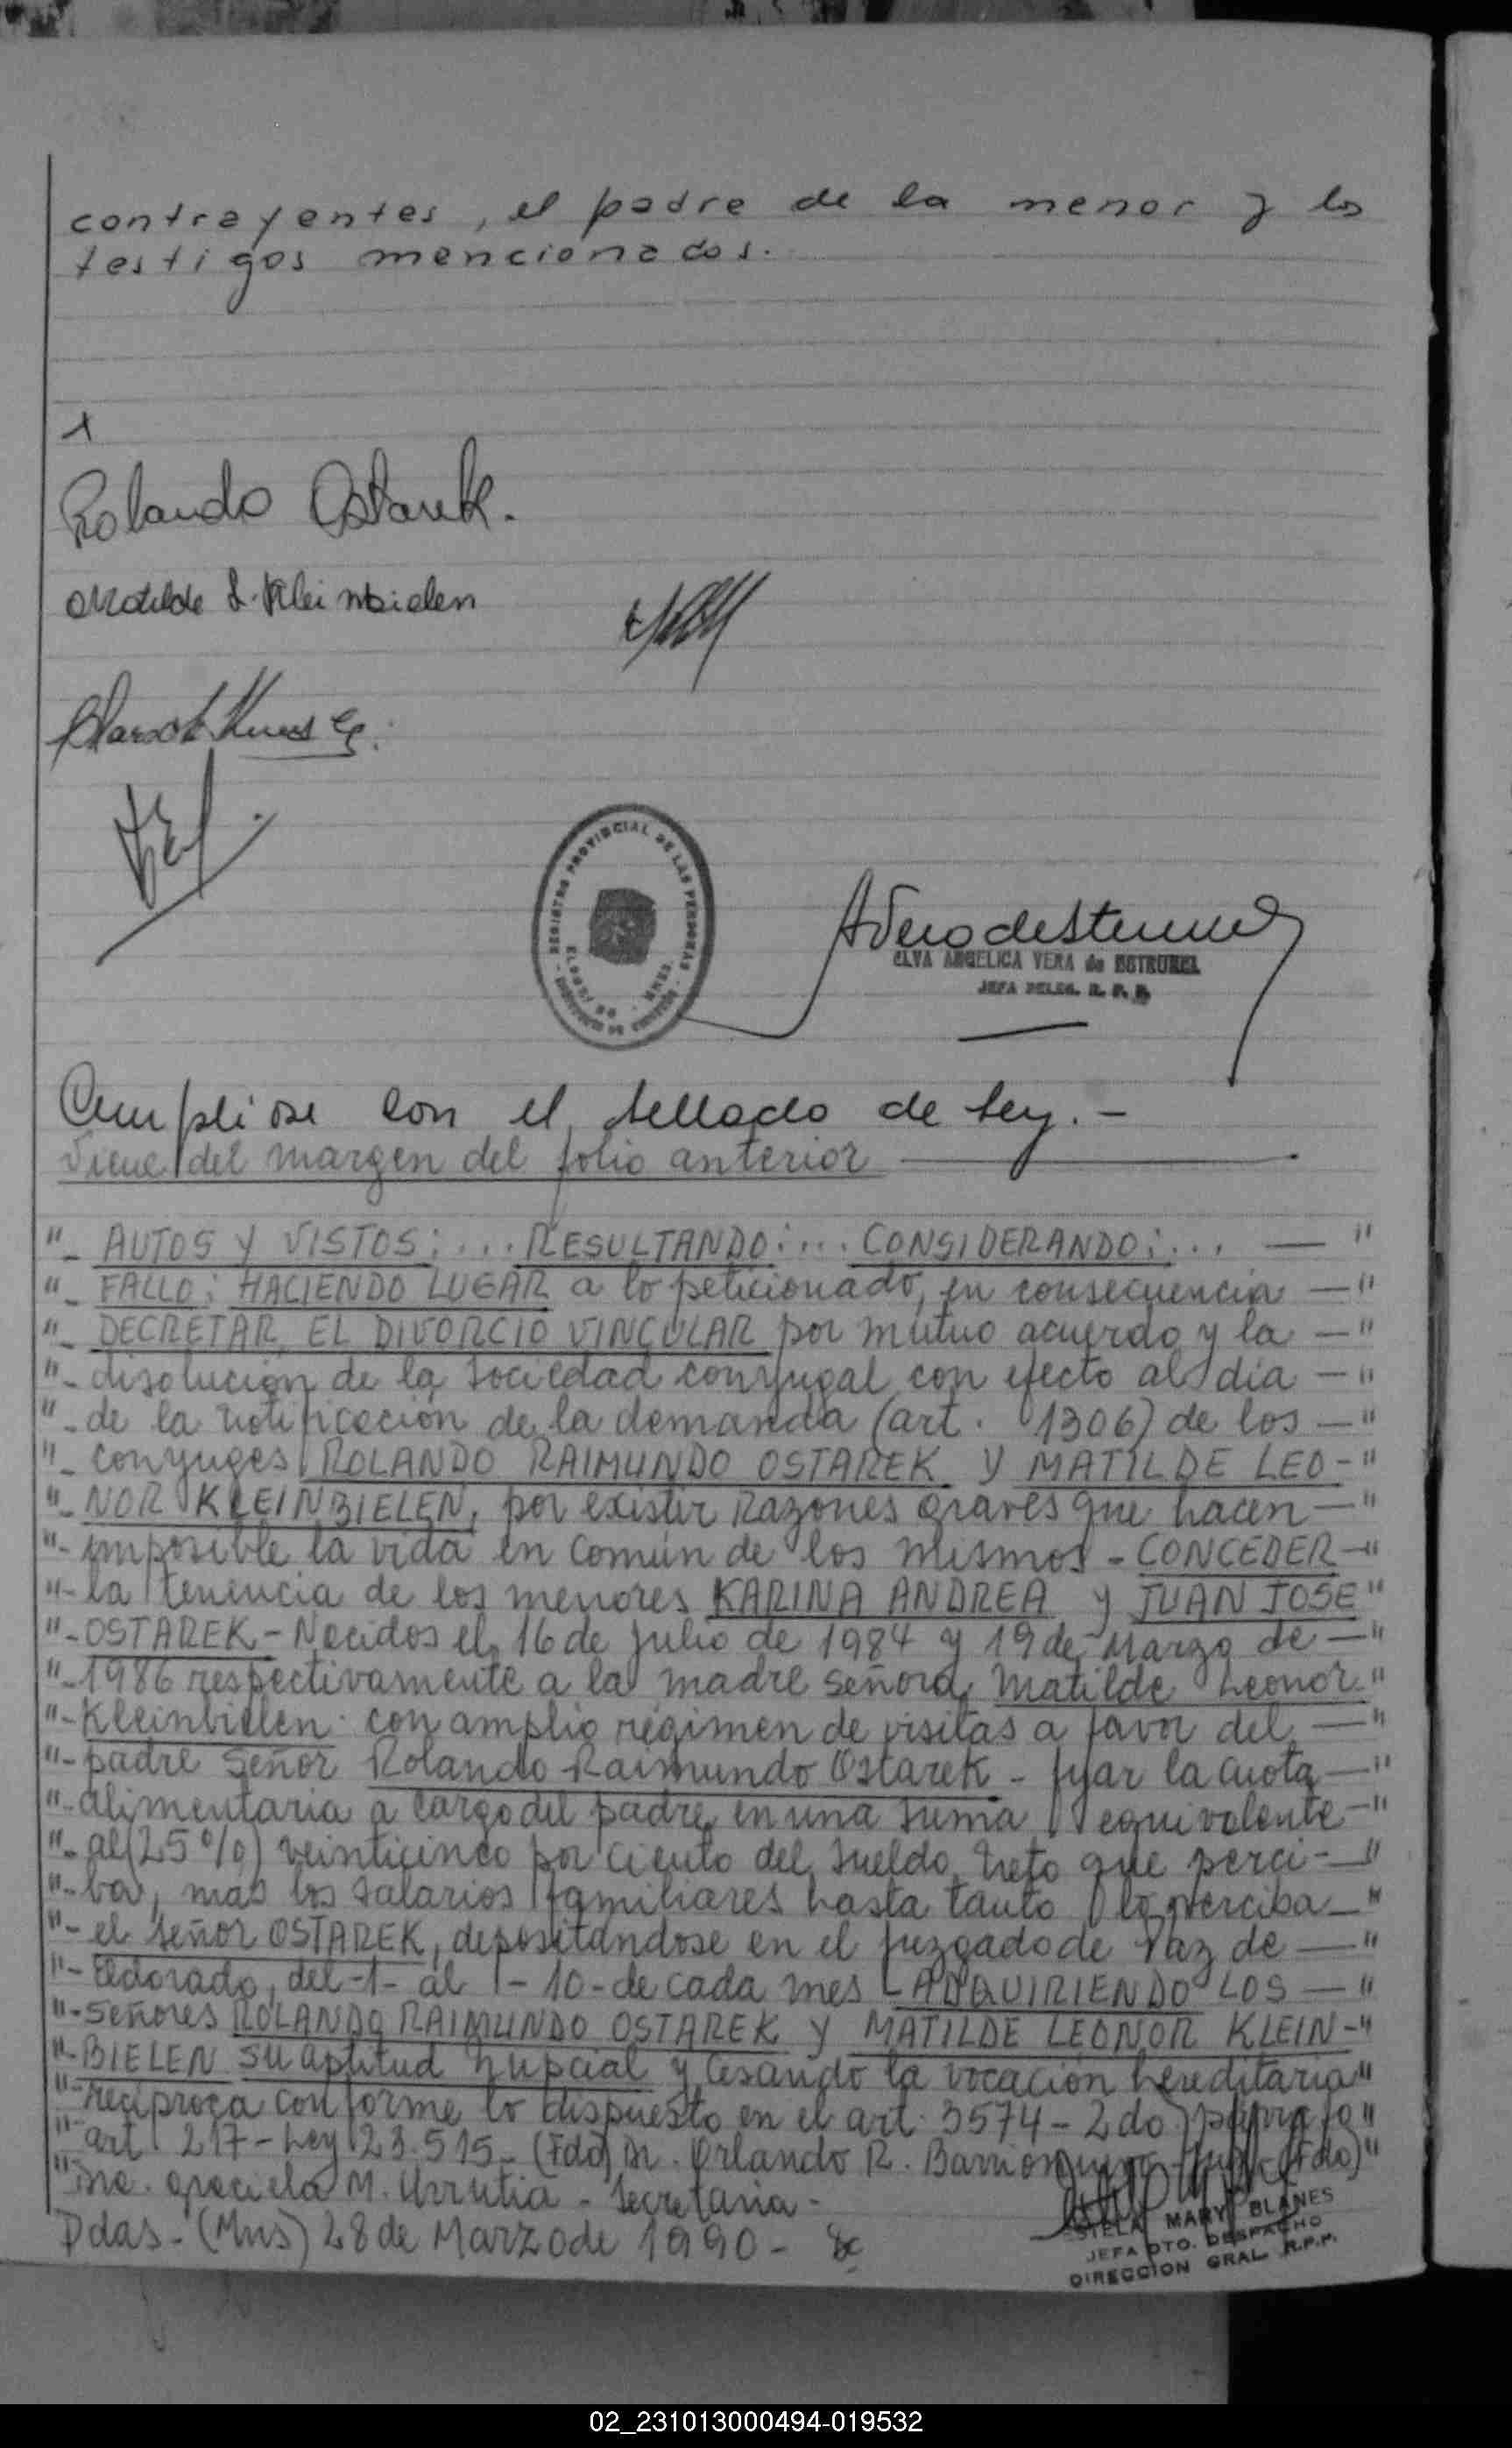 contrayentes, el padre de la menor y los
testigos mencionados.
Rolando Ostarek.
Matilde L. Kleinbielen
REGISTRO PROVINCIAL DE LAS PERSONAS
ELVA ANGELICA VERA de ESTRUBEL
JEFA DELEG. R. P. P.
Cumpliose con el sellado de ley. -
Viene del margen del folio anterior
"- AUTOS Y VISTOS:... RESULTANDO:... CONSIDERANDO:... — "
"- FALLO: HACIENDO LUGAR a lo peticionado, en consecuencia — "
"- DECRETAR EL DIVORCIO VINCULAR por mutuo acuerdo y la — "
"- disolución de la sociedad conyugal con efecto al día — "
"- de la notificación de la demanda (art. 1306) de los — "
"- conyuges ROLANDO RAIMUNDO OSTAREK Y MATILDE LEO- "
"- NOR KLEINBIELEN, por existir Razones graves que hacen — "
"- imposible la vida en común de los mismos - CONCEDER — "
"- la tenencia de los menores KARINA ANDREA y JUAN JOSE "
"- OSTAREK - Nacidos el 16 de julio de 1984 y 19 de Marzo de — "
"- 1986 respectivamente a la madre señora Matilde Leonor "
"- Kleinbielen con amplio régimen de visitas a favor del — "
"- padre Señor Rolando Raimundo Ostarek - fijar la cuota — "
"- alimentaria a cargo del padre en una suma equivalente - "
"- al (25%) veinticinco por ciento del sueldo neto que perci - "
"- ba, mas los salarios familiares hasta tanto lo perciba - "
"- el señor OSTAREK, depositandose en el juzgado de Paz de — "
"- Eldorado, del -1- al -10- de cada mes - ADQUIRIENDO LOS — "
"- Señores ROLANDO RAIMUNDO OSTAREK Y MATILDE LEONOR KLEIN- "
"- BIELEN su aptitud nupcial y cesando la vocación hereditaria "
"- reciproca conforme lo dispuesto en el art. 3574 - 2do párrafo "
"- art 217 - Ley 23.515 - (Fdo) Dr. Orlando R. Barrionuevo - Juez (Fdo) "
"- Dra. Graciela M. Urrutia - Secretaria -
Pdas - (Mns) 28 de Marzo de 1990 -
ESTELA MARY BLANES
JEFA DTO. DESPACHO
DIRECCION GRAL R.P.P.
02_231013000494-019532